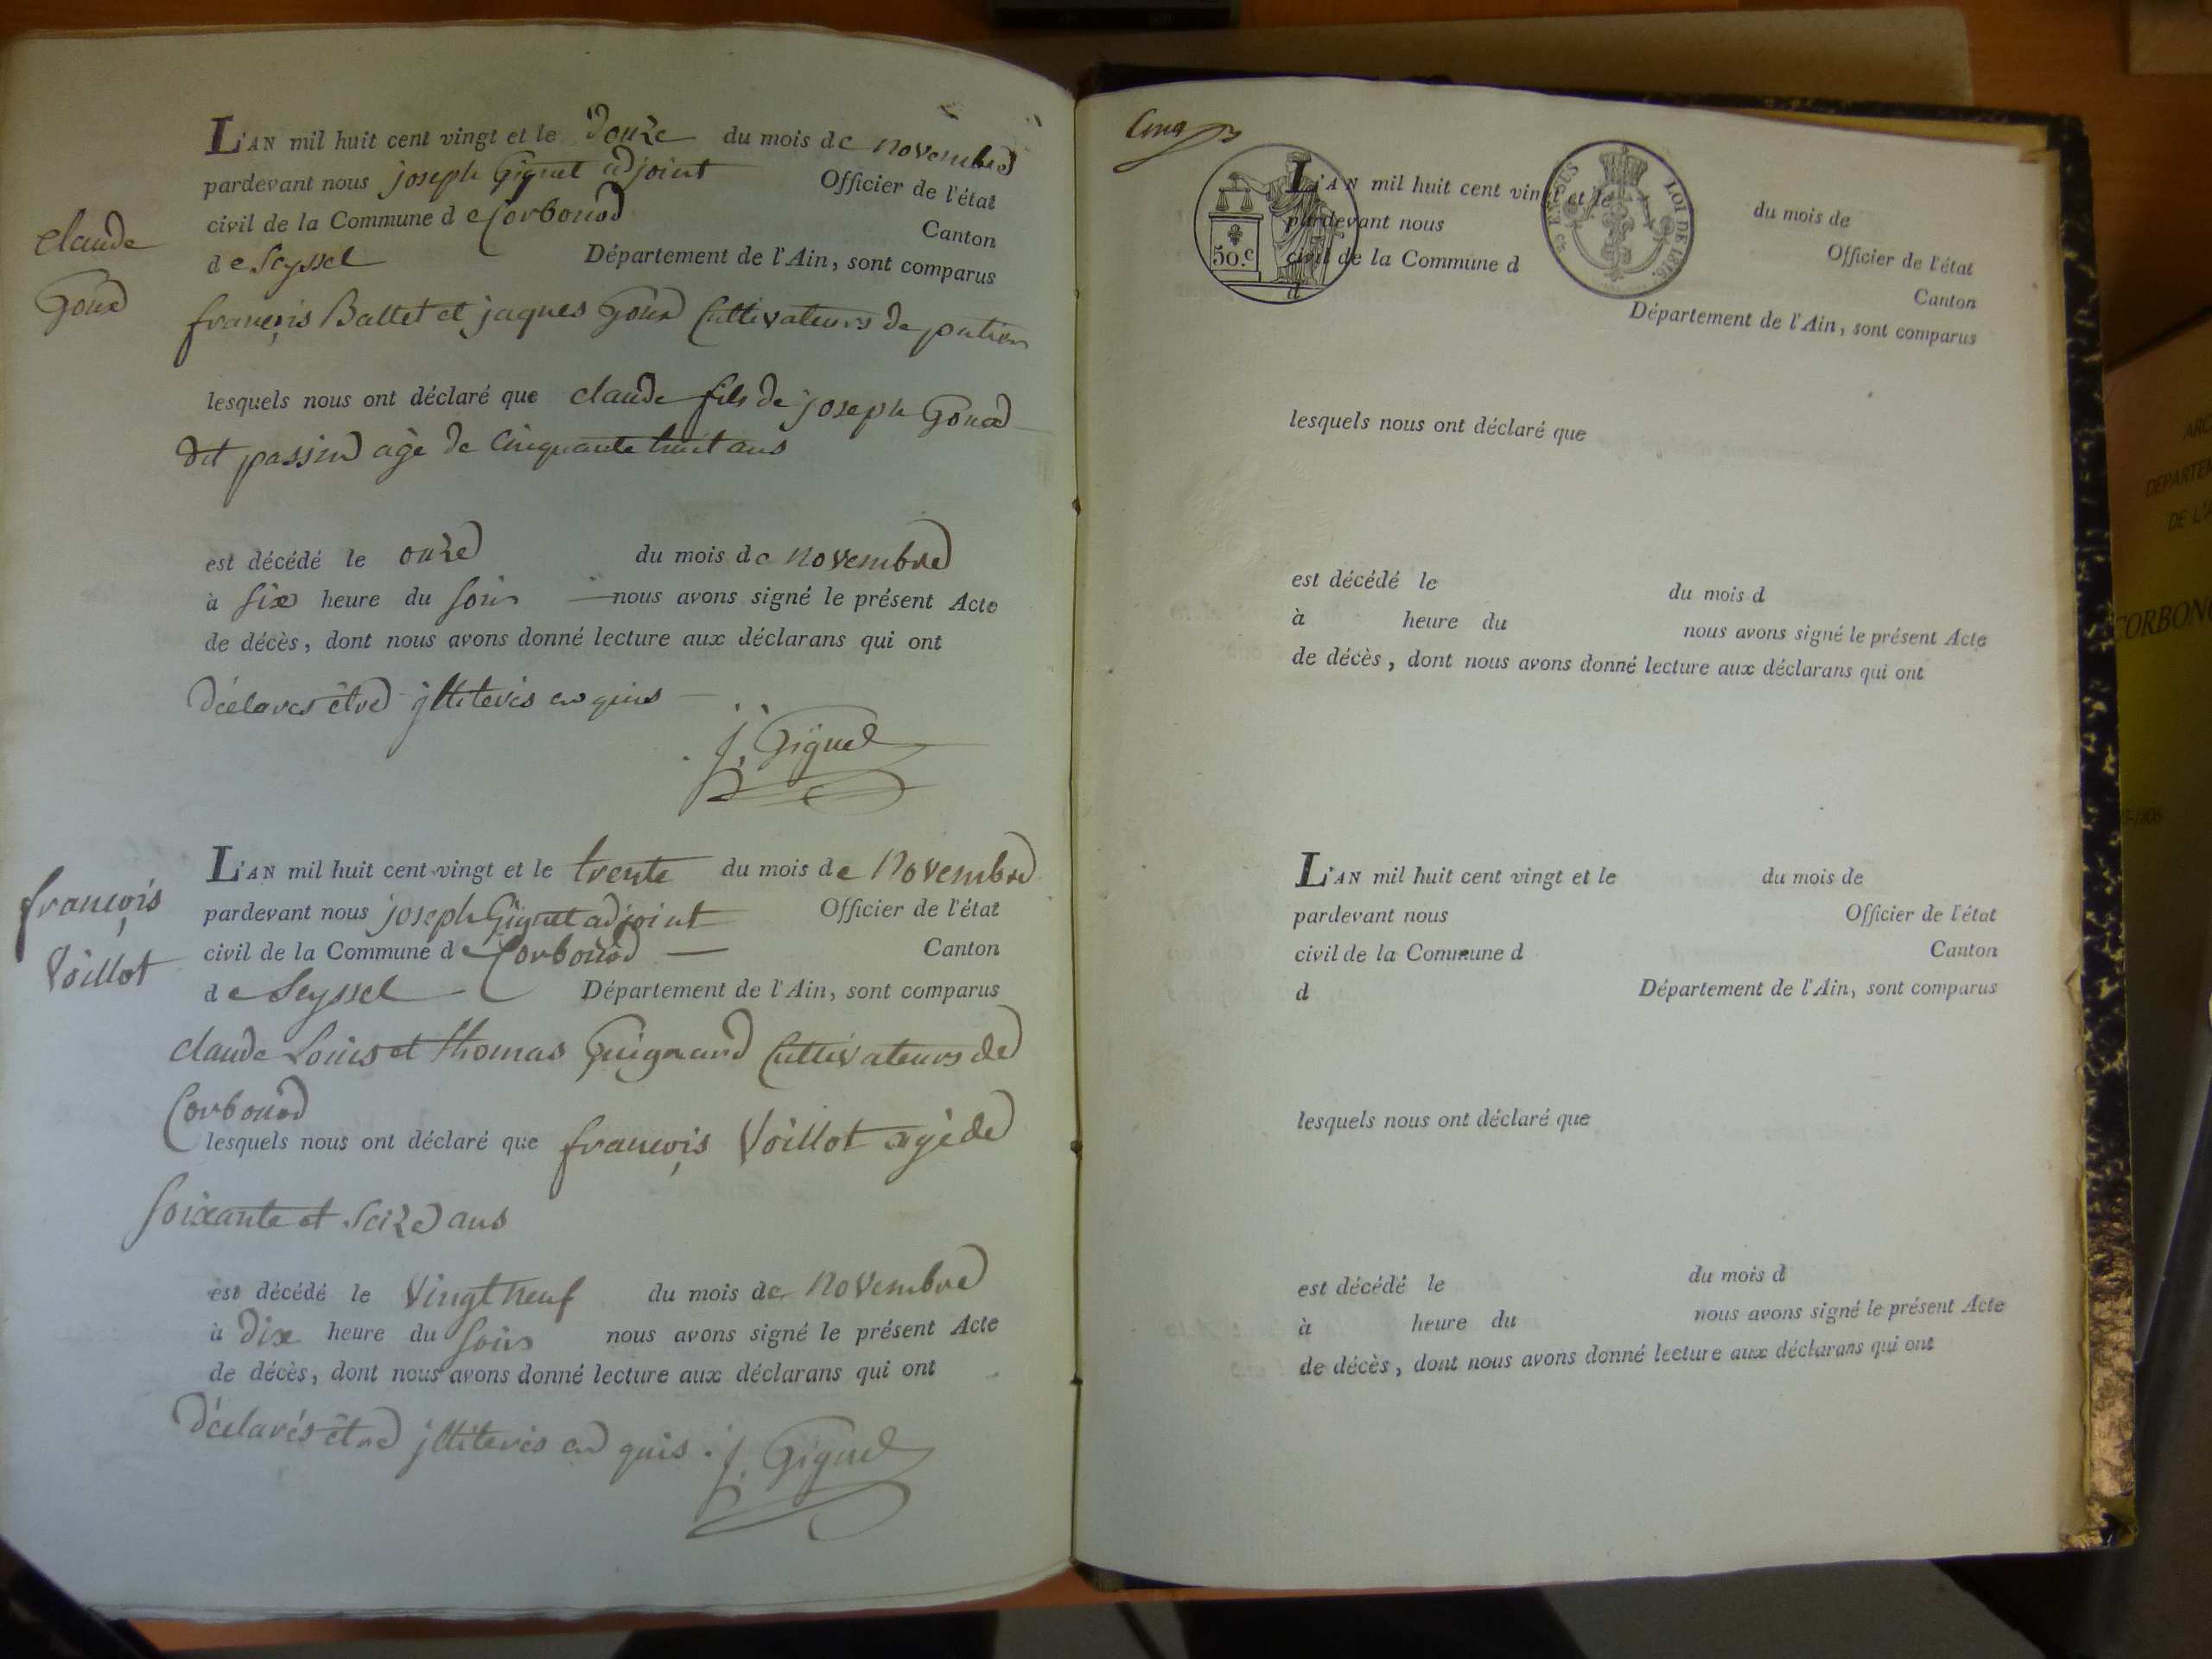 L'AN mil huit cent vingt et le Douze du mois de novembre
pardevant nous joseph Giguet adjoint Officier de l'état
civil de la Commune de Corbonod Canton
de Seyssel Département de l'Ain, sont comparus
claude
Goux
françois Ballet et jaques Goux Cultivateurs de
lesquels nous ont déclaré que claude fils de joseph Goux
dit passin agé de Cinquante huit ans
est décédé le onze du mois de novembre
à six heure du soir nous avons signé le présent Acte
de décès, dont nous avons donné lecture aux déclarans qui ont
déclarés être illiterés en quis
j. Giguet
L'AN mil huit cent vingt et le trente du mois de Novembre
pardevant nous joseph Giguet adjoint Officier de l'état
civil de la Commune de Corbonod Canton
de Seyssel Département de l'Ain, sont comparus
françois
Voillot
claude Louis et thomas Guignard Cultivateurs de
Corbonod
lesquels nous ont déclaré que françois Voillot agé de
soixante et seize ans
est décédé le Vingt neuf du mois de Novembre
à Dix heure du soir nous avons signé le présent Acte
de décès, dont nous avons donné lecture aux déclarans qui ont
déclarés être illiterés en quis. j. Giguet
Cinq
L'AN mil huit cent vingt et le du mois de
pardevant nous Officier de l'état
civil de la Commune d Canton
d Département de l'Ain, sont comparus
50.c
LOI DE 1816.
lesquels nous ont déclaré que
est décédé le du mois d
à heure du nous avons signé le présent Acte
de décès, dont nous avons donné lecture aux déclarans qui ont
L'AN mil huit cent vingt et le du mois de
pardevant nous Officier de l'état
civil de la Commune d Canton
d Département de l'Ain, sont comparus
lesquels nous ont déclaré que
est décédé le du mois d
à heure du nous avons signé le présent Acte
de décès, dont nous avons donné lecture aux déclarans qui ont